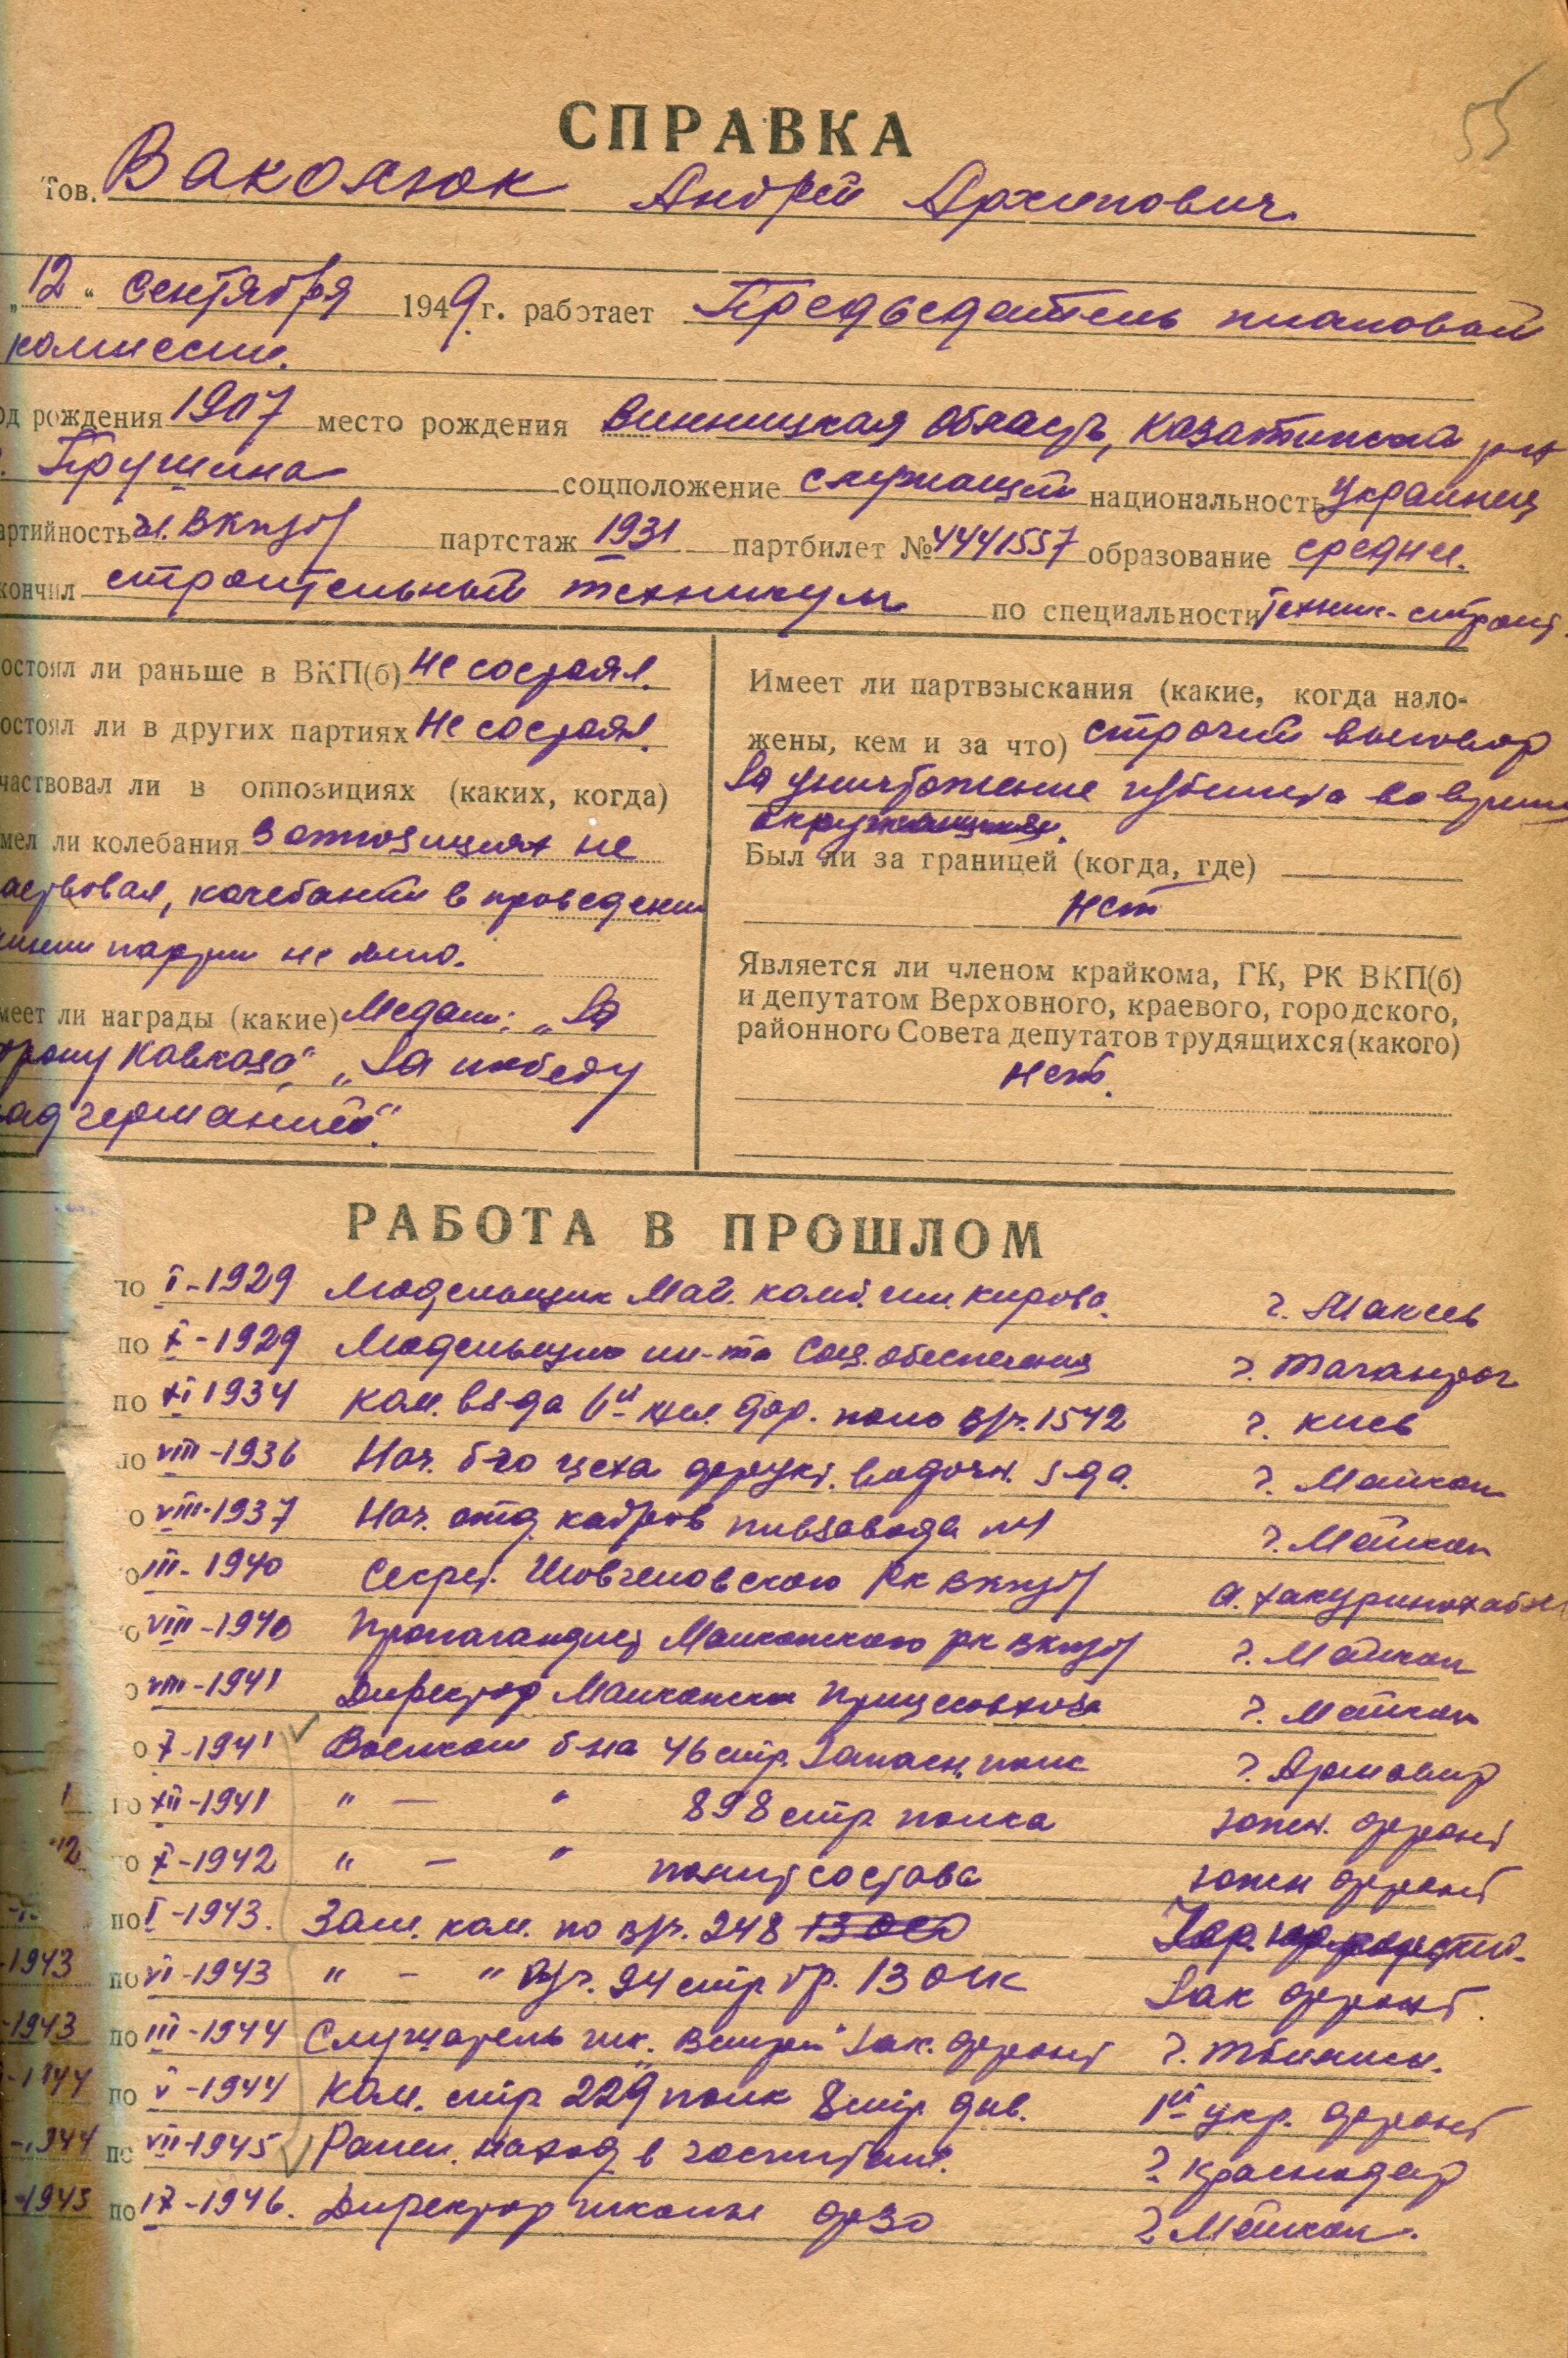 55
СПРАВКА
Тов. Ваколюк Андрей Архипович
„12“ сентября 1949 г. работает Председатель плановой
комиссии.
од рождения 1907 место рождения Винницкая область, Казатинский р-н
. Прушинa соцположение служащий национальность украинец
артийность чл. ВКП(б) партстаж 1931 партбилет № 4441557 образование средне.
кончил строительный техникум по специальности Техник-строит
остоял ли раньше в ВКП(б) не состоял.
остоял ли в других партиях не состоял.
частвовал ли в оппозициях (каких, когда)
мел ли колебания в оппозициях не
аствовал, колебаний в проведении
линии партии не было.
меет ли награды (какие) Медали: „За
орону Кавказа“, „За победу
ад германией“.
Имеет ли партвзыскания (какие, когда нало-
жены, кем и за что) строгий выговор
за уничтожение п/билета во время
окружения.
Был ли за границей (когда, где)
нет
Является ли членом крайкома, ГК, РК ВКП(б)
и депутатом Верховного, краевого, городского,
районного Совета депутатов трудящихся (какого)
нет.
РАБОТА В ПРОШЛОМ
по I-1929 Модельщик Мак. комб. им. Кирова. г. Макеев
по X-1929 Модельщик ин-та Соц. обеспечения г. Таганрог
по XI 1934 Ком. вз-да 6й жел. дор. полк в/ч. 1542 г. Киев
по VIII-1936 Нач. 5-го цеха фрукт. водочн. з-да. г. Майкоп
о VIII-1937 Нач. отд. кадров пивзавода №1 г. Майкоп
о III-1940 Секрет. Шовгеновского РК ВКП(б) а. Хакуринохабль
о VIII-1940 Пропагандист Майкопского РК ВКП(б) г. Майкоп
о VIII-1941 Директор Майкопск. Плодсовхоза г. Майкоп
о X-1941 Военком б-на 46 стр. Запасн. полк г. Армавир
1 по XII-1941 " — " 898 стр. полка южн. фронт
12 о X-1942 " — " полит состава южн фронт
по I-1943. Зам. ком. по в/ч. 248
-1943 по VI-1943 " - " в/ч. 94 стр бр. 13 Зак фронт.
-1943 по III-1944 Слушатель шк. „Выстрел“ Зак. фронт г. Тбилиси.
-1944 по V-1944 Ком. стр. 229 полк 8 стр. див. 1й укр. фронт
-1944 по VII-1945 Ранен. наход в госпитале. г. Краснодар
-1945 по IX-1946. Директор школы ФЗО г. Майкоп.